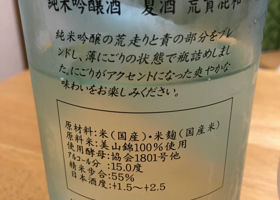 純米吟醸酒 夏酒 荒責混和
純米吟醸の荒走りと責の部分をブレ
ンドし、薄にごりの状態で瓶詰めしまし
た。にごりがアクセントになった爽やかな
味わいをお楽しみください。
原材料:米(国産)・米麹(国産米)
原料米:美山錦100%使用
使用酵母:協会1801号他
アルコール分:15.0度
精米歩合:55%
日本酒度:+1.5〜+2.5